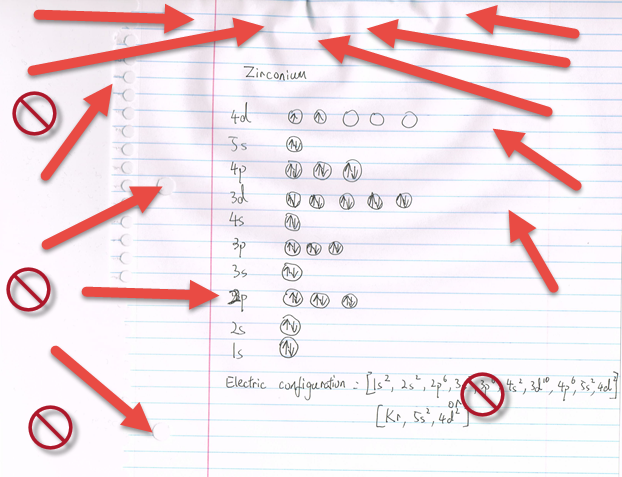 Zirconium
4d ↑ ↑
5s ↑↓
4p ↑↓ ↑↓ ↑↓
3d ↑↓ ↑↓ ↑↓ ↑↓ ↑↓
4s ↑↓
3p ↑↓ ↑↓ ↑↓
3s ↑↓
2p ↑↓ ↑↓ ↑↓
2s ↑↓
1s ↑↓
Electric configuration = [1s², 2s², 2p⁶, 3p⁶, 4s², 3d¹⁰, 4p⁶, 5s², 4d²]
or
[Kr, 5s², 4d²]